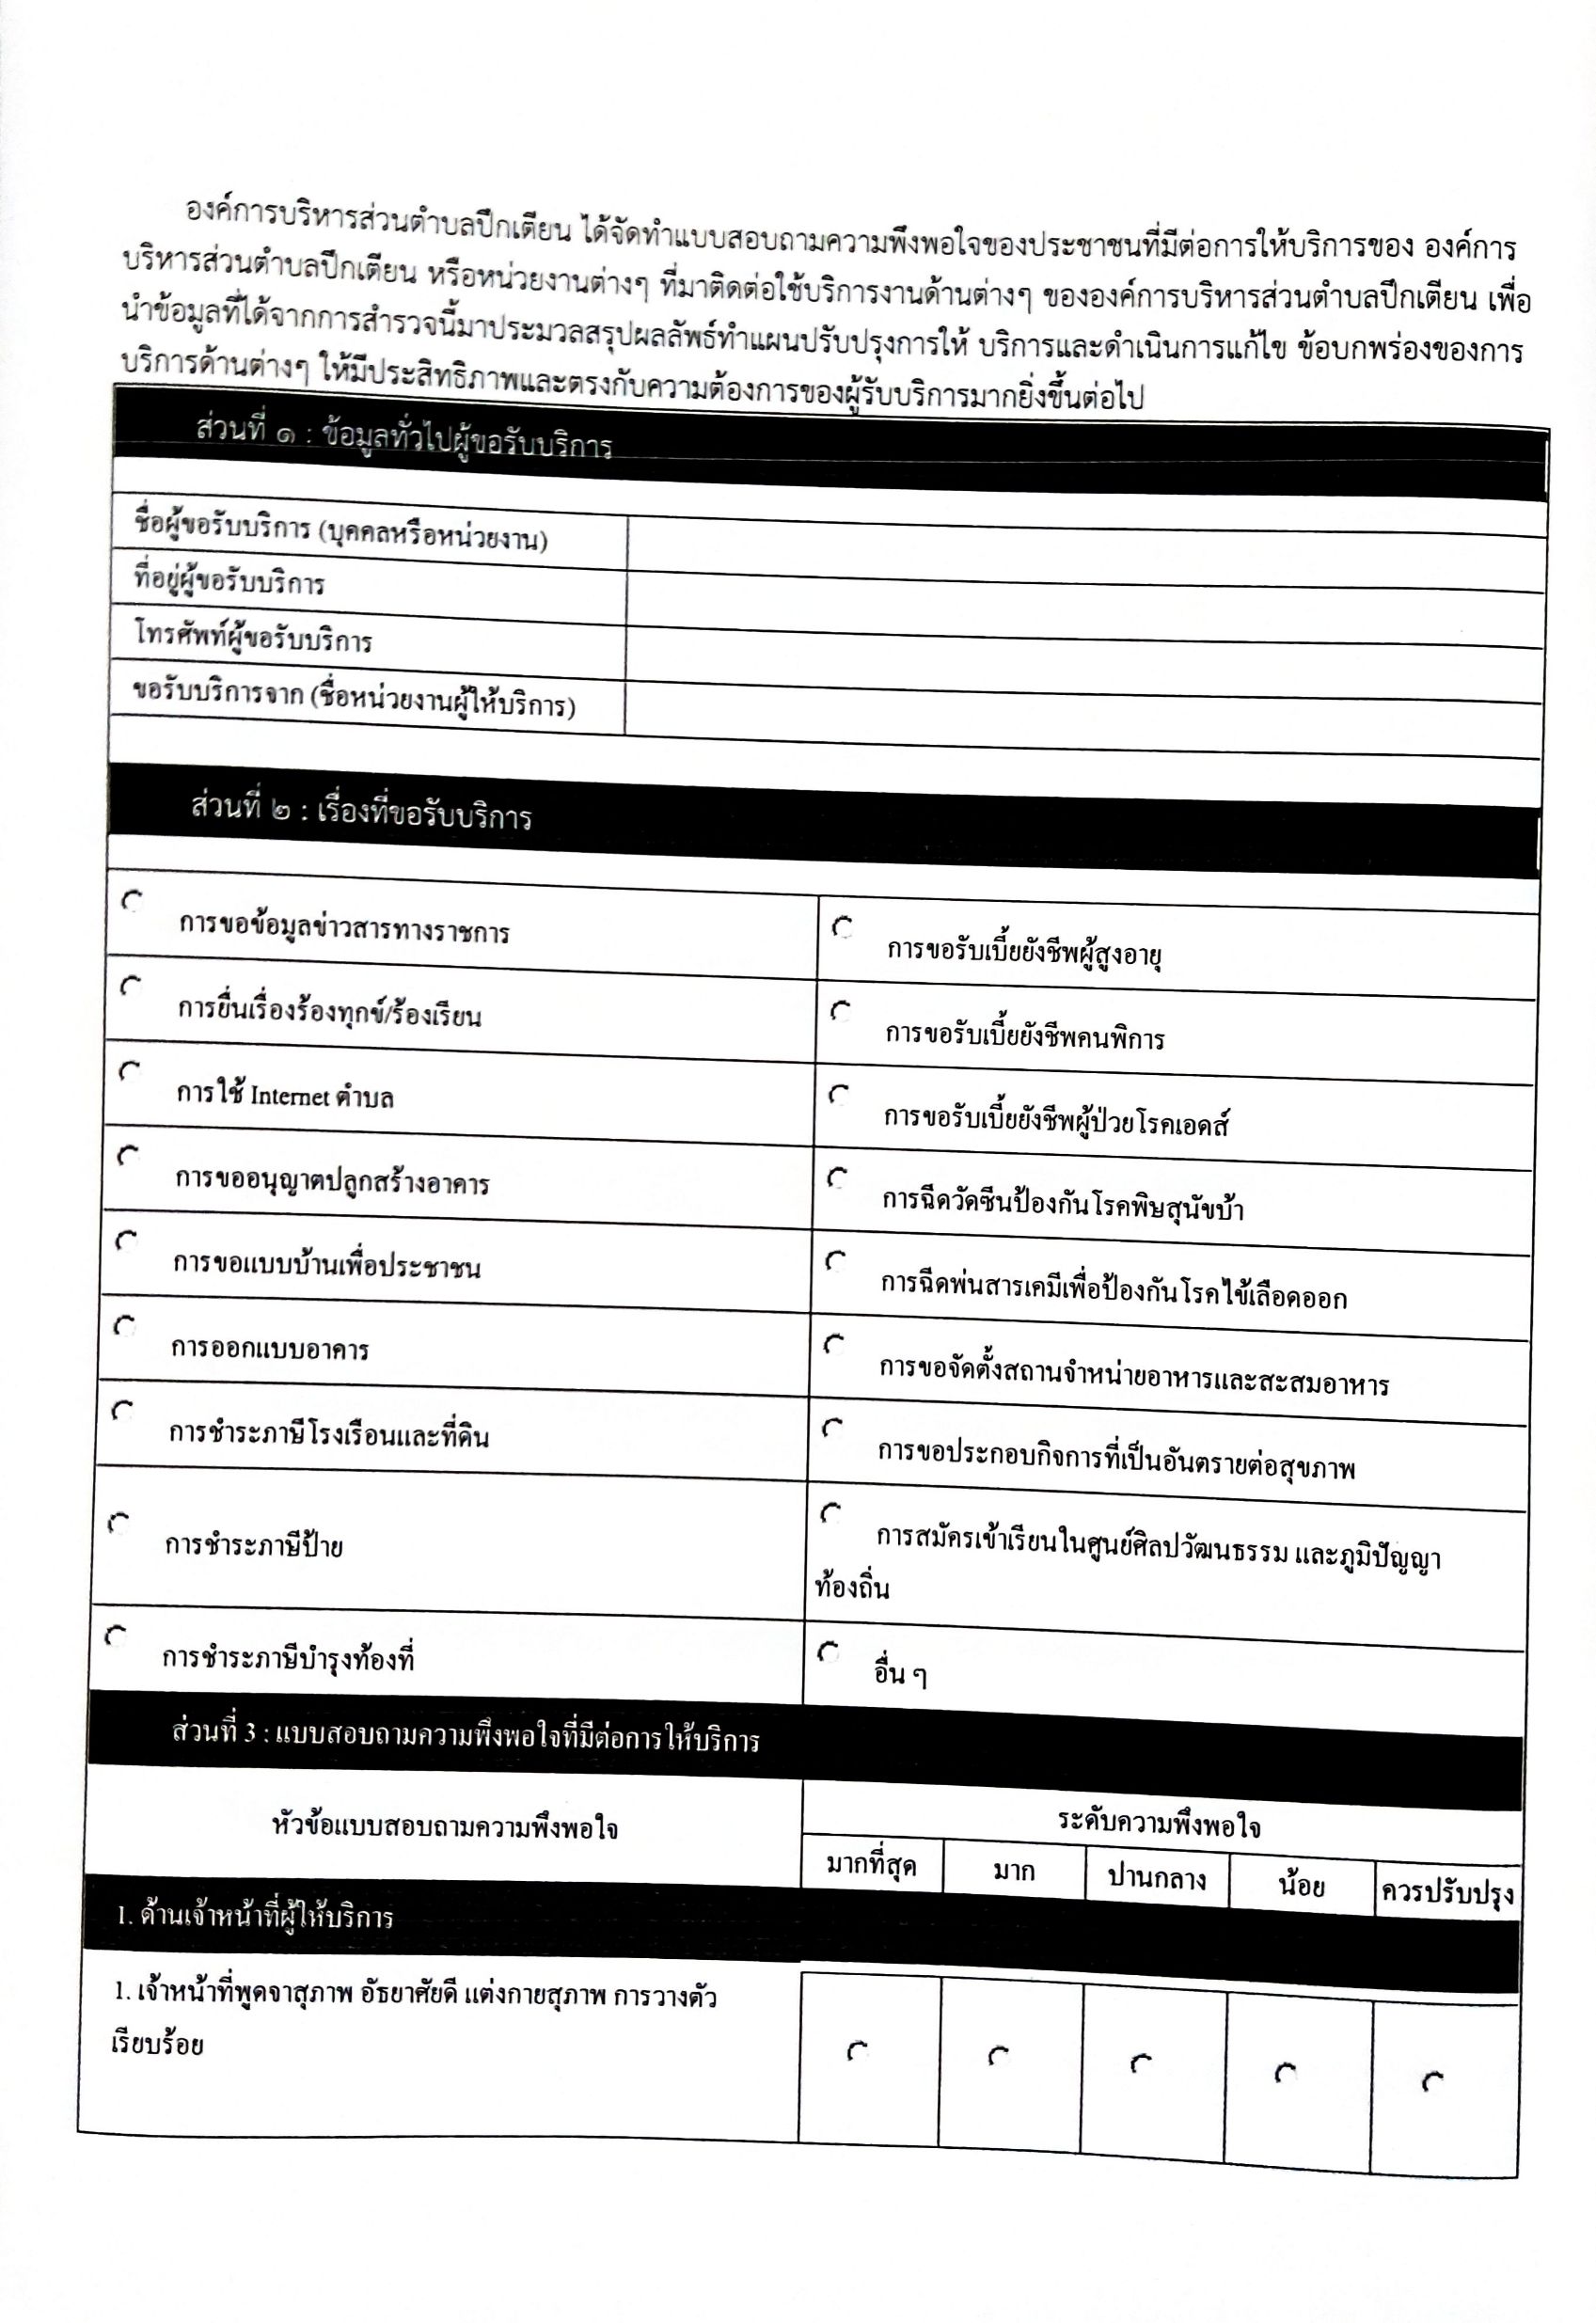 องค์การบริหารส่วนตำบลปึกเตียน ได้จัดทำแบบสอบถามความพึงพอใจของประชาชนที่มีต่อการให้บริการของ องค์การ
บริหารส่วนตำบลปึกเตียน หรือหน่วยงานต่างๆ ที่มาติดต่อใช้บริการงานด้านต่างๆ ขององค์การบริหารส่วนตำบลปึกเตียน เพื่อ
นำข้อมูลที่ได้จากการสำรวจนี้มาประมวลสรุปผลลัพธ์ทำแผนปรับปรุงการให้ บริการและดำเนินการแก้ไข ข้อบกพร่องของการ
บริการด้านต่างๆ ให้มีประสิทธิภาพและตรงกับความต้องการของผู้รับบริการมากยิ่งขึ้นต่อไป
ส่วนที่ ๑ : ข้อมูลทั่วไปผู้ขอรับบริการ
ชื่อผู้ขอรับบริการ (บุคคลหรือหน่วยงาน)
ที่อยู่ผู้ขอรับบริการ
โทรศัพท์ผู้ขอรับบริการ
ขอรับบริการจาก (ชื่อหน่วยงานผู้ให้บริการ)
ส่วนที่ ๒ : เรื่องที่ขอรับบริการ
การขอข้อมูลข่าวสารทางราชการ
การขอรับเบี้ยยังชีพผู้สูงอายุ
การยื่นเรื่องร้องทุกข์/ร้องเรียน
การขอรับเบี้ยยังชีพคนพิการ
การใช้ Internet ตำบล
การขอรับเบี้ยยังชีพผู้ป่วยโรคเอดส์
การขออนุญาตปลูกสร้างอาคาร
การฉีดวัคซีนป้องกันโรคพิษสุนัขบ้า
การขอแบบบ้านเพื่อประชาชน
การฉีดพ่นสารเคมีเพื่อป้องกันโรคไข้เลือดออก
การออกแบบอาคาร
การขอจัดตั้งสถานจำหน่ายอาหารและสะสมอาหาร
การชำระภาษีโรงเรือนและที่ดิน
การขอประกอบกิจการที่เป็นอันตรายต่อสุขภาพ
การชำระภาษีป้าย
การสมัครเข้าเรียนในศูนย์ศิลปวัฒนธรรม และภูมิปัญญา
ท้องถิ่น
การชำระภาษีบำรุงท้องที่
อื่น ๆ
ส่วนที่ 3 : แบบสอบถามความพึงพอใจที่มีต่อการให้บริการ
หัวข้อแบบสอบถามความพึงพอใจ
ระดับความพึงพอใจ
มากที่สุด มาก ปานกลาง น้อย ควรปรับปรุง
1. ด้านเจ้าหน้าที่ผู้ให้บริการ
1. เจ้าหน้าที่พูดจาสุภาพ อัธยาศัยดี แต่งกายสุภาพ การวางตัว
เรียบร้อย